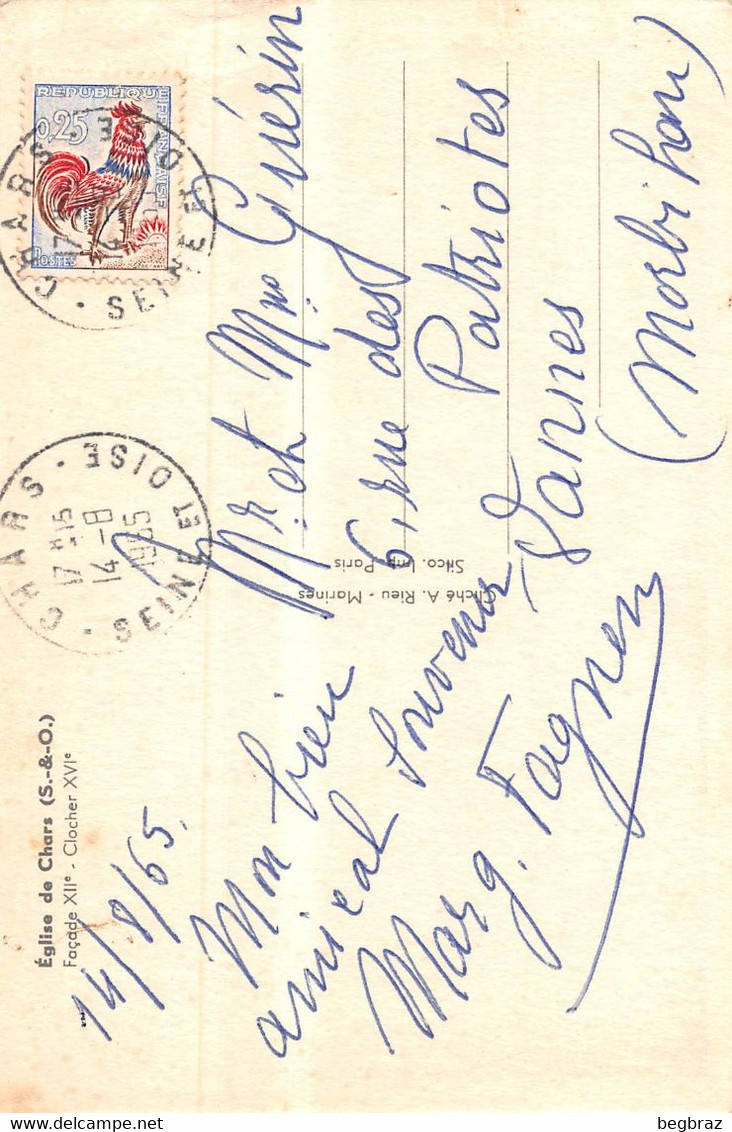 Église de Chars (S.-&-O.)
Façade XIIe - Clocher XVIe
14/8/65.
Mon bien
amical souvenir
Marg. Fagnen
Cliché A. Rieu - Marines
Silco. Imp. Paris
CHARS
SEINE ET OISE
17 H 15
14 - 8
1965
REPUBLIQUE FRANÇAISE
0,25
POSTES
CHARS
SEINE ET OISE
Mr et Mme Guérin
6, rue des
Patriotes
Vannes
(Morbihan)
begbraz